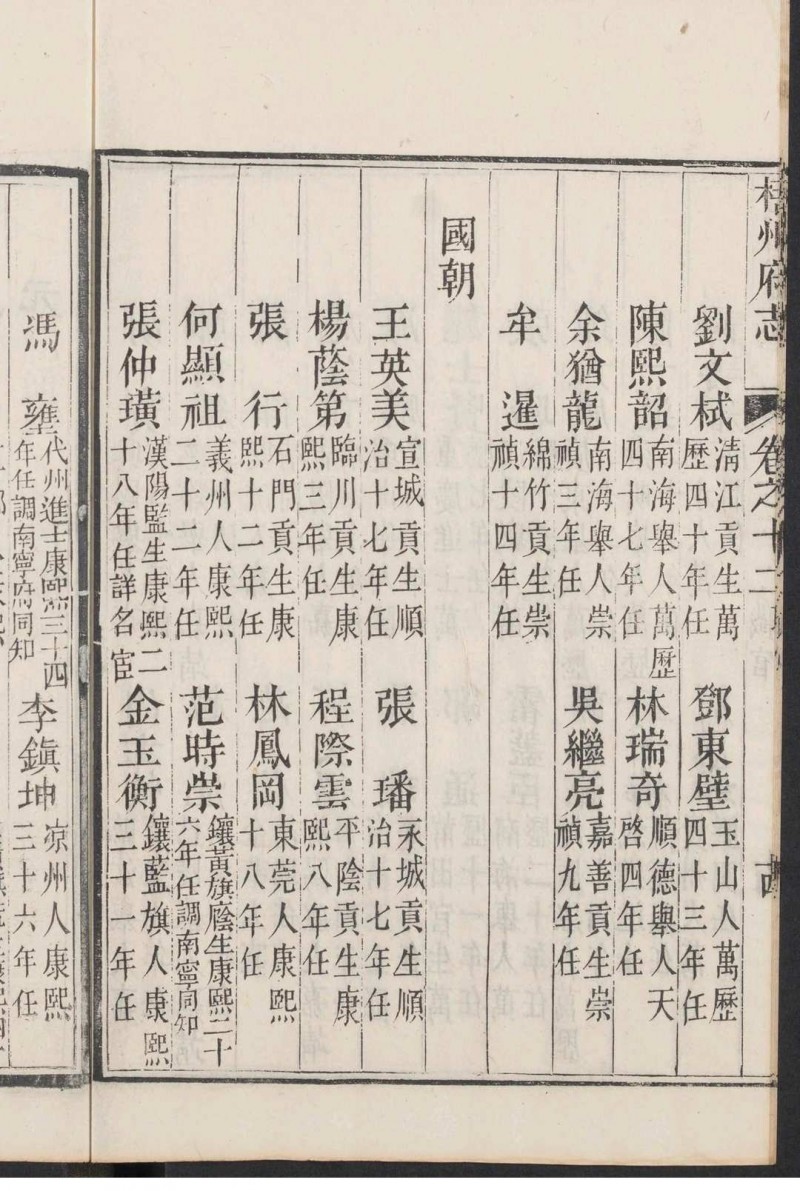 梧州府志 卷之十二 職官 十四
劉文栻 淸江貢生萬歷四十年任 鄧東壁 玉山人萬歷四十三年任
陳熙韶 南海舉人萬歷四十七年任 林瑞奇 順德舉人天啓四年任
余猶龍 南海舉人崇禎三年任 吳繼亮 嘉善貢生崇禎九年任
牟暹 綿竹貢生崇禎十四年任
國朝
王英美 宣城貢生順治十七年任 張璠 永城貢生順治十七年任
楊蔭第 臨川貢生康熙三年任 程際雲 平陰貢生康熙八年任
張行 石門貢生康熙十二年任 林鳳岡 東莞人康熙十八年任
何顯祖 義州人康熙二十二年任 范時崇 鑲黃旗廕生康熙二十六年任調南寧同知
張仲璜 漢陽監生康熙二十八年任詳名宦 金玉衡 鑲藍旗人康熙三十一年任
馮壅 代州進士康熙三十四年任調南寧府同知 李鎭坤 凉州人康熙三十六年任